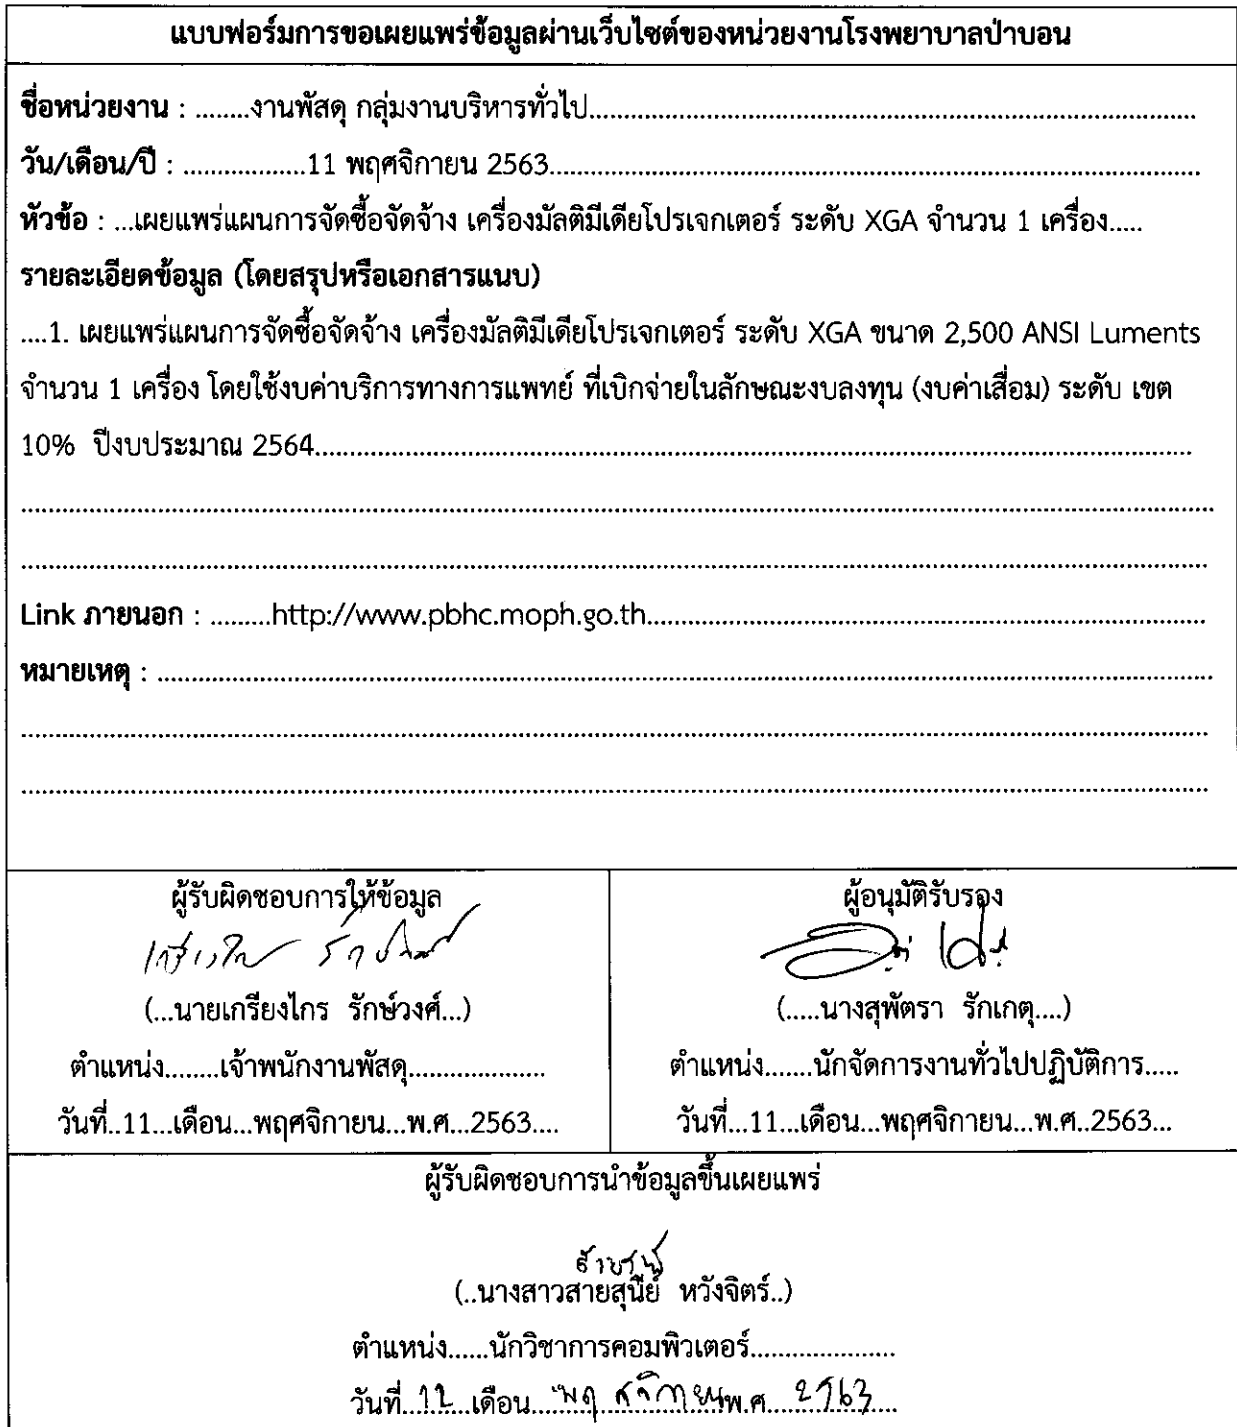 แบบฟอร์มการขอเผยแพร่ข้อมูลผ่านเว็บไซต์ของหน่วยงานโรงพยาบาลป่าบอน
ชื่อหน่วยงาน : ........งานพัสดุ กลุ่มงานบริหารทั่วไป..........................................................................................
วัน/เดือน/ปี : ..................11 พฤศจิกายน 2563.................................................................................................
หัวข้อ : ...เผยแพร่แผนการจัดซื้อจัดจ้าง เครื่องมัลติมีเดียโปรเจกเตอร์ ระดับ XGA จำนวน 1 เครื่อง.....
รายละเอียดข้อมูล (โดยสรุปหรือเอกสารแนบ)
....1. เผยแพร่แผนการจัดซื้อจัดจ้าง เครื่องมัลติมีเดียโปรเจกเตอร์ ระดับ XGA ขนาด 2,500 ANSI Luments
จำนวน 1 เครื่อง โดยใช้งบค่าบริการทางการแพทย์ ที่เบิกจ่ายในลักษณะงบลงทุน (งบค่าเสื่อม) ระดับ เขต
10% ปีงบประมาณ 2564..................................................................................................................................
Link ภายนอก : .........http://www.pbhc.moph.go.th...................................................................................
หมายเหตุ : ............................................................................................................................................................
ผู้รับผิดชอบการให้ข้อมูล
เกรียงไกร รักษ์วงศ์
(...นายเกรียงไกร รักษ์วงศ์...)
ตำแหน่ง........เจ้าพนักงานพัสดุ....................
วันที่..11...เดือน...พฤศจิกายน...พ.ศ...2563....
ผู้อนุมัติรับรอง
(.....นางสุพัตรา รักเกตุ....)
ตำแหน่ง.......นักจัดการงานทั่วไปปฏิบัติการ.....
วันที่...11...เดือน...พฤศจิกายน...พ.ศ..2563...
ผู้รับผิดชอบการนำข้อมูลขึ้นเผยแพร่
(..นางสาวสายสุนีย์ หวังจิตร์..)
ตำแหน่ง......นักวิชาการคอมพิวเตอร์.....................
วันที่...12....เดือน....พฤศจิกายน....พ.ศ....2563....